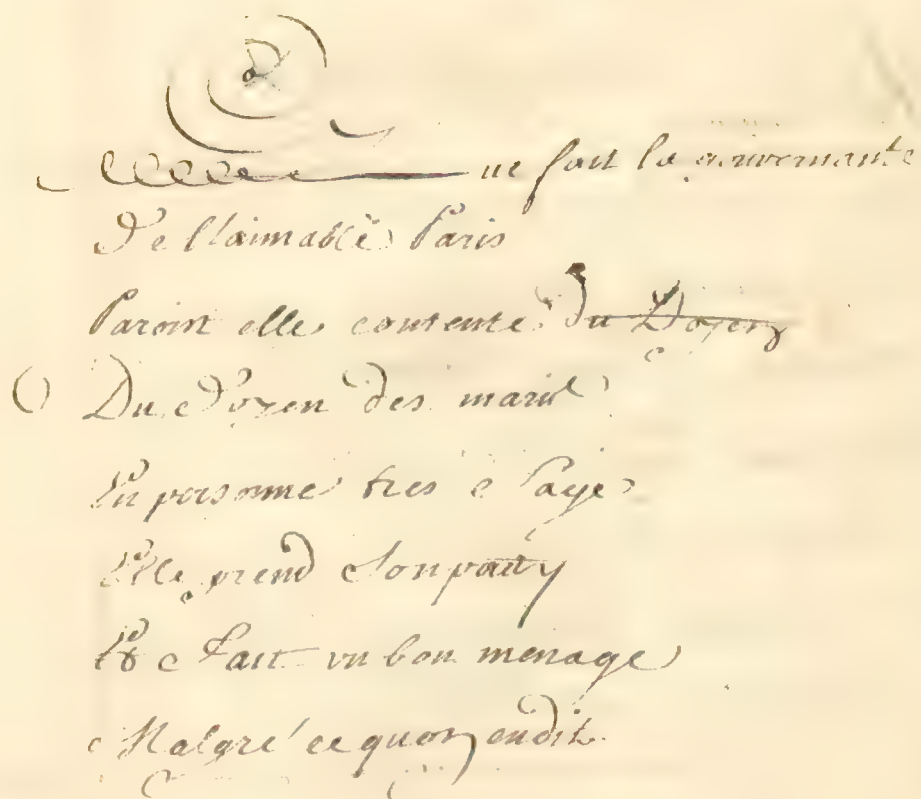 ue fait la gouvernante
De l'aimable Paris
Paroist elle contente du Doyen
Du Doyen des maris
En personne tres sage
Elle prend son party
Et fait un bon menage
Malgré ce quon en dit.